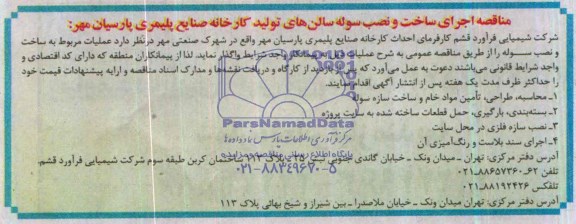 مناقصه اجرای ساخت و نصب سوله سالن‌های تولید کارخانه صنایع پلیمری پارسیان مهر:
شرکت شیمیایی فرآورد قشم کارفرمای احداث کارخانه صنایع پلیمری پارسیان مهر واقع در شهرک صنعتی مهر در نظر دارد عملیات مربوط به ساخت
و نصب سوله را از طریق مناقصه عمومی به شرح عملیات ذیل به پیمانکار واجد شرایط واگذار نماید. لذا از پیمانکاران منطقه که دارای کد اقتصادی و
واجد شرایط قانونی می‌باشند دعوت به عمل می‌آورد که بازدید از کارگاه و دریافت نقشه‌ها و مدارک اسناد مناقصه و ارایه پیشنهادات قیمت خود
را حداکثر ظرف مدت یک هفته پس از انتشار آگهی اقدام نمایند.
۱-محاسبه، طراحی، تأمین مواد خام و ساخت سازه سوله
۲-بسته‌بندی، بارگیری، حمل قطعات ساخته شده به سایت پروژه
۳-نصب سازه فلزی در محل سایت
۴-اجرای سند بلاست و رنگ‌آمیزی آن
آدرس دفتر مرکزی: تهران - میدان ونک - خیابان گاندی جنوبی نبش ۲۵ - پلاک ۱۱۴ ساختمان کربن طبقه سوم شرکت شیمیایی فرآورد قشم.
تلفن ۶۲-۸۸۶۵۷۳۶۰-۰۲۱
تلفکس ۸۸۱۹۲۴۲۶-۰۲۱
آدرس دفتر مرکزی: تهران میدان ونک - خیابان ملاصدرا - بین شیراز و شیخ بهائی پلاک ۱۱۳
ParsNamadData
مرکز فرآوری اطلاعات پارس نماد داده‌ها
پایگاه اطلاع رسانی مناقصه و مزایده
۰۲۱-۸۸۳۴۹۶۷۰-۵